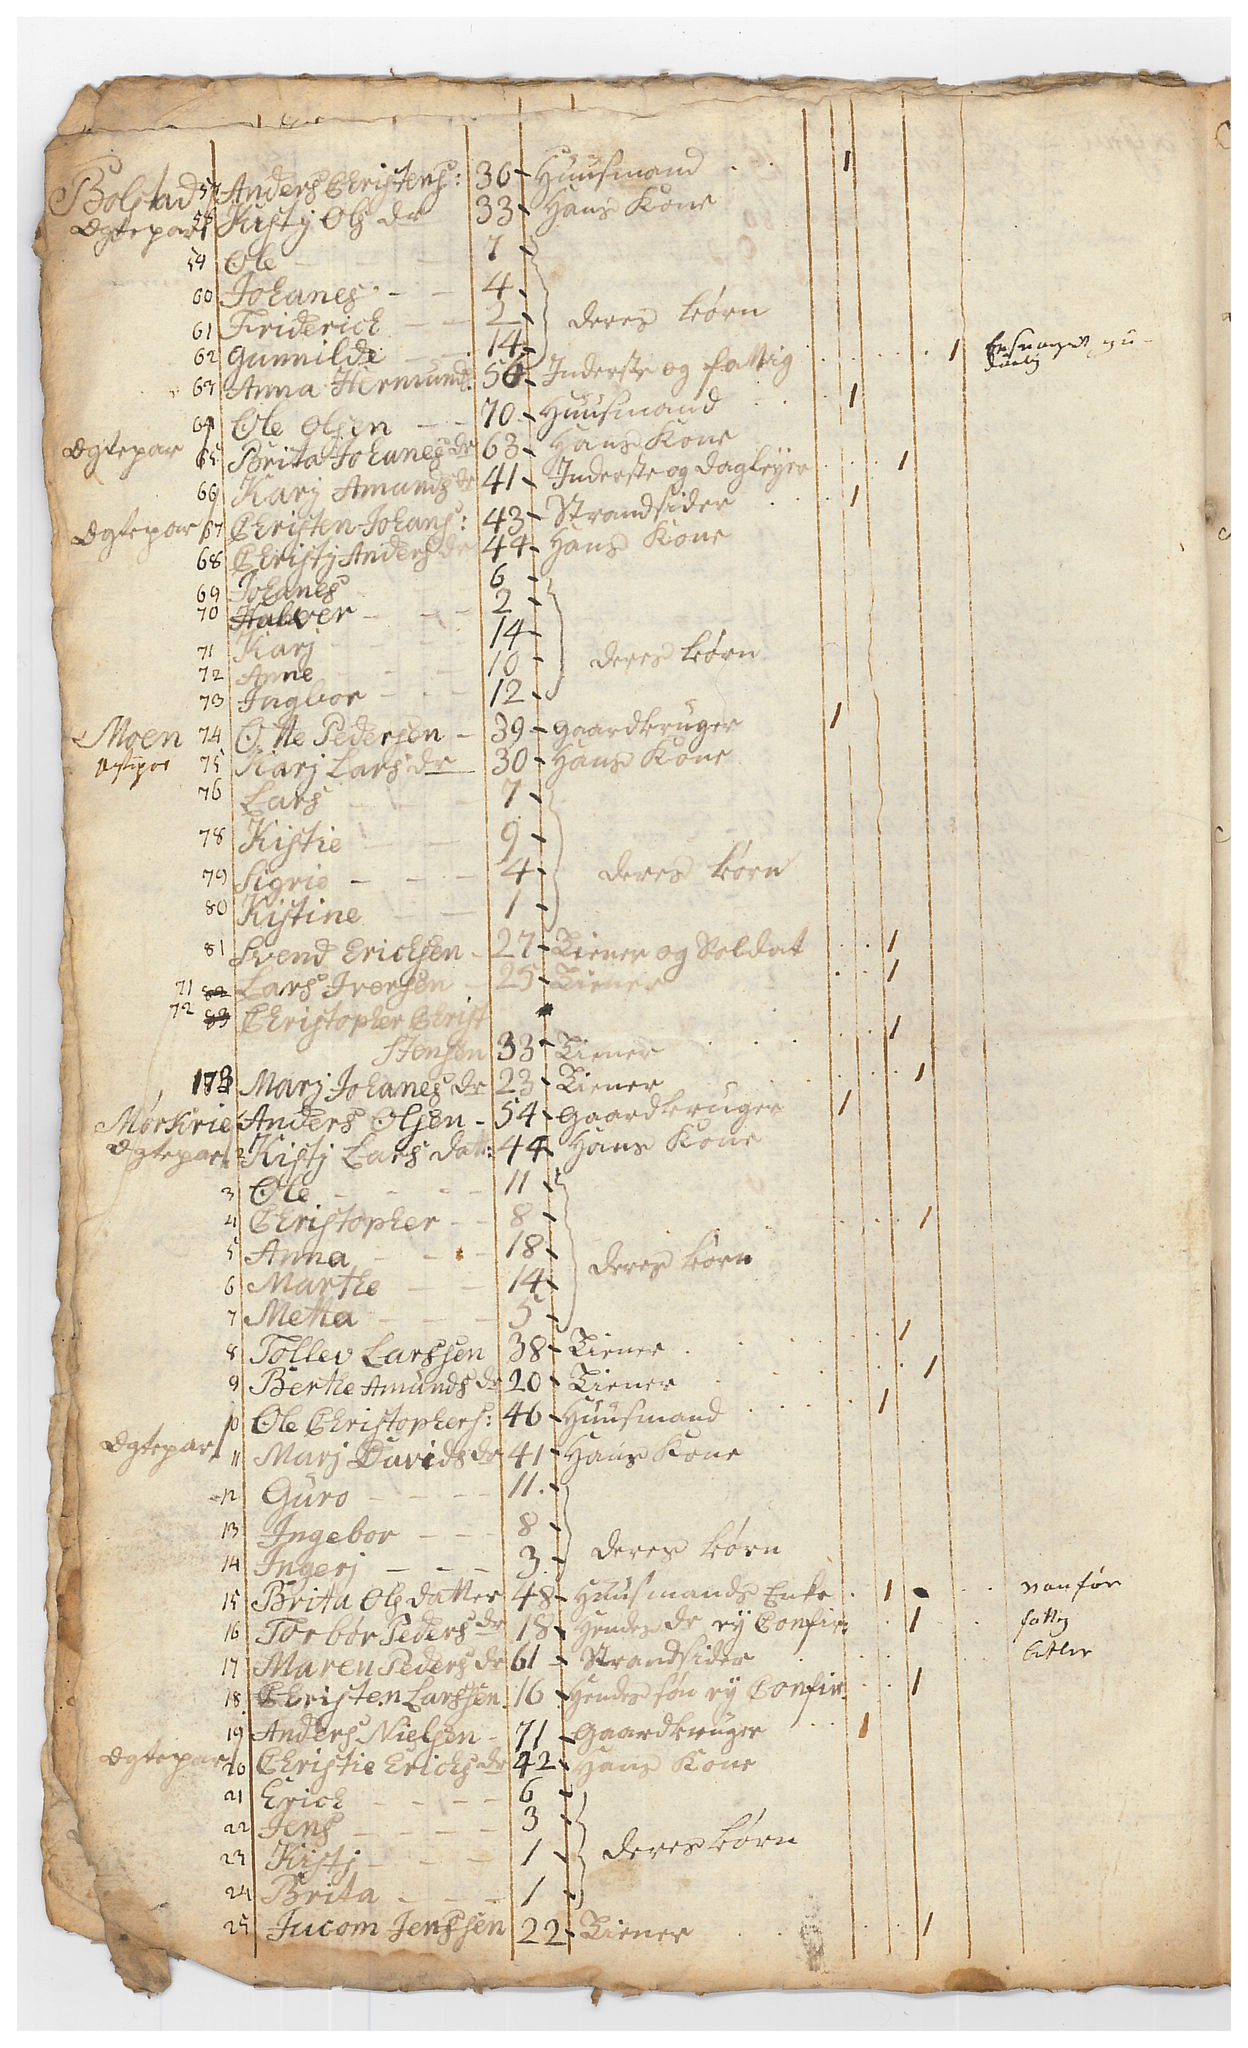 Bolstad 57 Anders Christens: 36 - Huusmand 1
Ægtepar 58 Kistj Ols dr 33 - Hans Kone
59 Ole 7 -
60 Johanes - - 4 -
61 Friderich - - 2 - deres börn
62 Gunnilde - - 14 -
63 Anna Hermund 56 - Inderste og fattig 1
64 Ole Olsen - - 70 - Huusmand 1
Ægtepar 65 Brita Johanes dr 63 - Hans Kone
66 Karj Amunds dr 41 - Inderste og dagleyer 1
Ægtepar 67 Christen Johans: 43 - Strandsider 1
68 Christj Anders dr 44 - Hans Kone
69 Johanes 6 -
70 Halver - - - 2 -
71 Karj 14 -
72 Anne - - - 10 - deres börn
73 Ingbor - - - 12 -
Moen 74 Otte Pedersen - 39 - gaardbruger 1
75 Karj Lars dr 30 - Hans Kone
76 Lars - - - 7 -
78 Kistie - - 9 -
79 Sigrie - - - 4 - deres börn
80 Kistine - - 1 -
81 Svend Erichsen - 27 - Tiener og Soldat 1
71 82 Lars Iversen - 25 - Tiener 1
72 83 Christopher Christ
stensen 33 - Tiener 1
173 Marj Johanes dr 23 - Tiener 1
Mørkrie Anders Olsen - 54 - gaardbruger 1
Ægtepar 2 Kistj Lars datt: 44 - Hans Kone
3 Ole - - - - 11 -
4 Christopher - - 8 - 1
5 Anna - - - 18 - deres börn
6 Marthe - - 14 -
7 Metta - - - 5 -
8 Tollev Larssen 38 - Tiener 1
9 Berthe Amunds dr 20 - Tiener 1
10 Ole Christophers: 46 - Huusmand 1
Ægtepar 11 Marj Davids dr 41 - Hans Kone
12 Guro - - - - 11 -
13 Ingebor - - - 8 -
14 Ingerj - - - 3 - deres börn
15 Brita Ols datter 48 - Huusmands Enke 1 vanför
16 Torbør Peders dr 18 - Hendes dr ej Confir: 1 fattig
17 Maren Peders dr 61 - Strandsider
18 Christen Larssen 16 - Hendes sön ej Confir 1
19 Anders Nielsen - 71 - gaardbruger 1
Ægtepar 20 Christie Erichs dr 42 - Hans Kone
21 Erich - - - - 6 -
22 Jens - - - - 3 -
23 Kistj - - - 1 - deres börn
24 Brita - - - 1 -
25 Jucom Jenssen 22 - Tiener 1